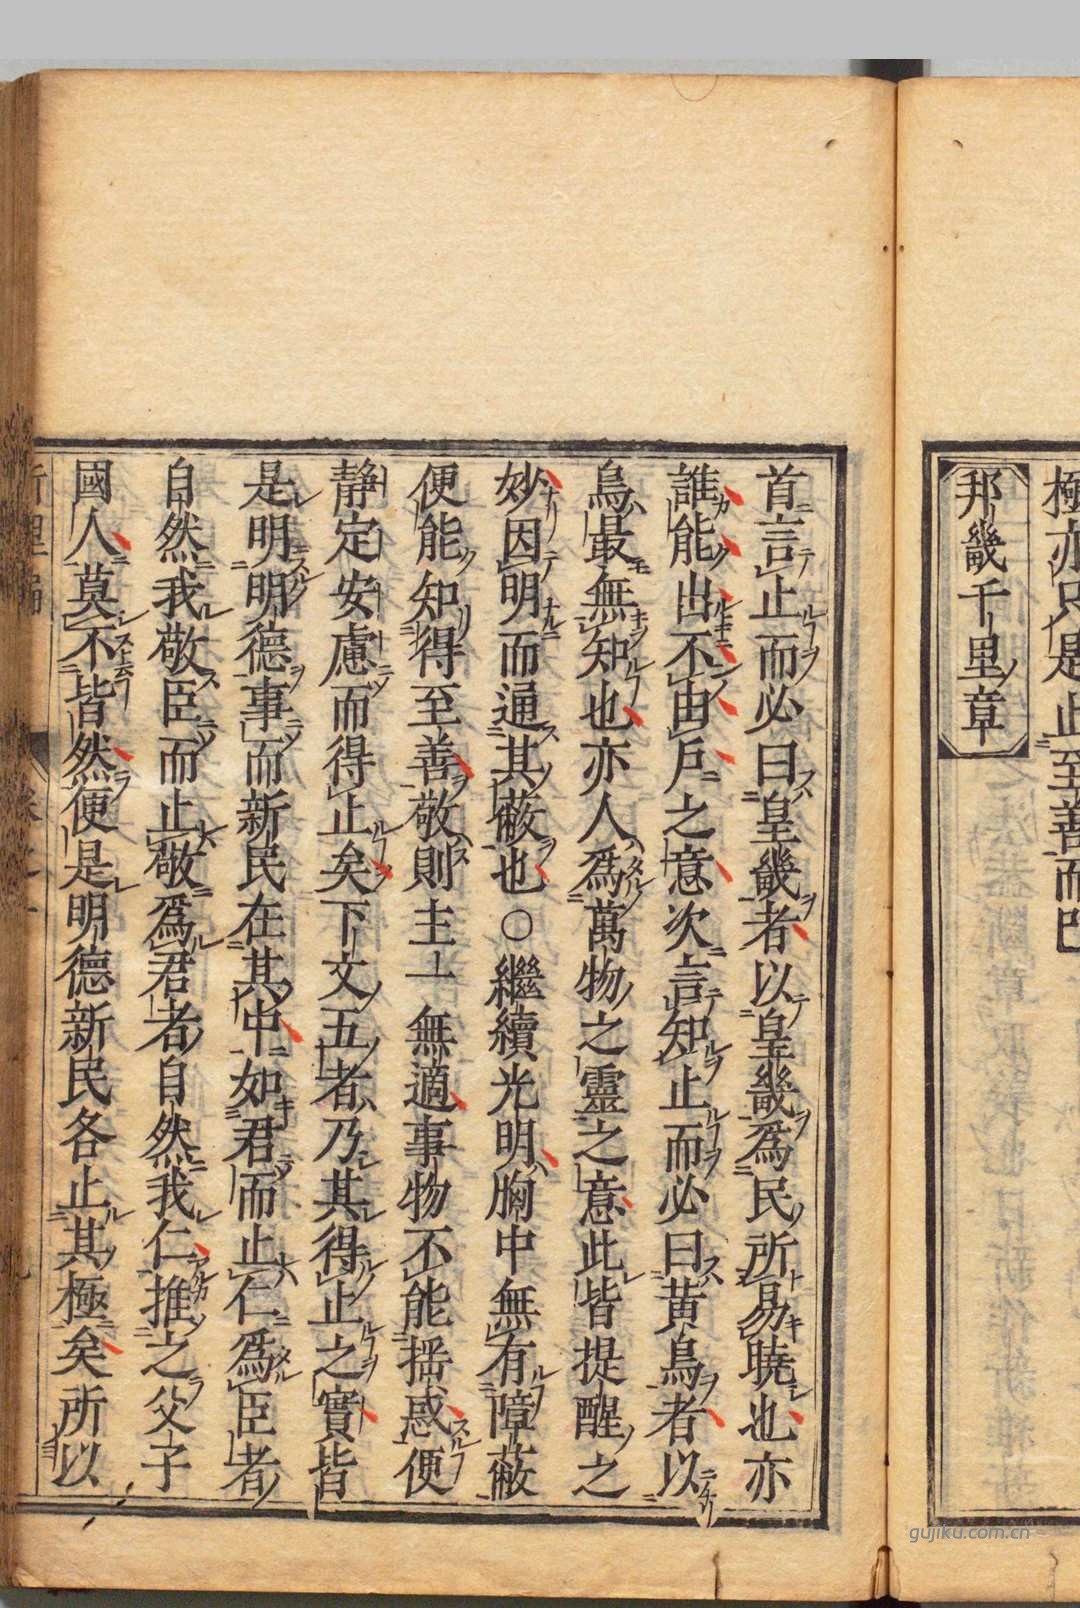 極亦只是止至善而已
邦畿千里章
首言止而必曰皇畿者以皇畿爲民所易曉也亦
誰能出不由戶之意次言知止而必曰黃鳥者以
鳥最無知也亦人爲萬物之靈之意此皆提醒之
妙因明而通其蔽也○繼續光明胸中無有障蔽
便能知得至善敬則主一無適事物不能搖惑便
靜定安慮而得止矣下文五者乃其得止之實皆
是明明德事而新民在其中如君而止仁爲臣者
自然我敬臣而止敬爲君者自然我仁推之父子
國人莫不皆然便是明德新民各止其極矣所以
gujiku.com.cn